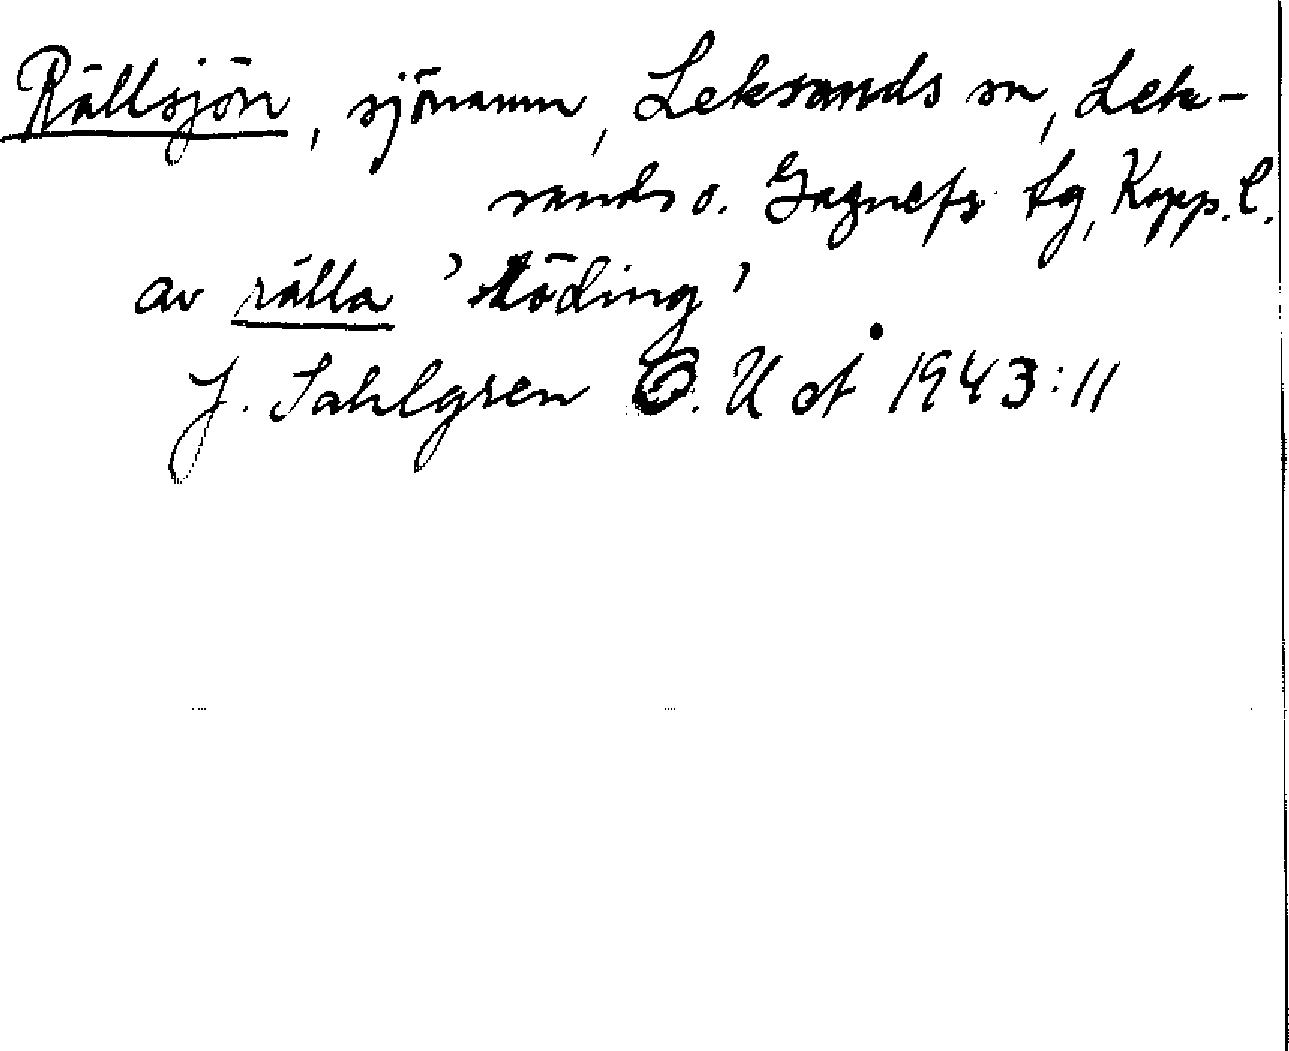 Rällsjön, sjönamn, Leksands sn, Lek-
sands o. Gagnefs tg, Kopp. l.
av rälla 'röding'
J. Sahlgren O. U of 1943:11